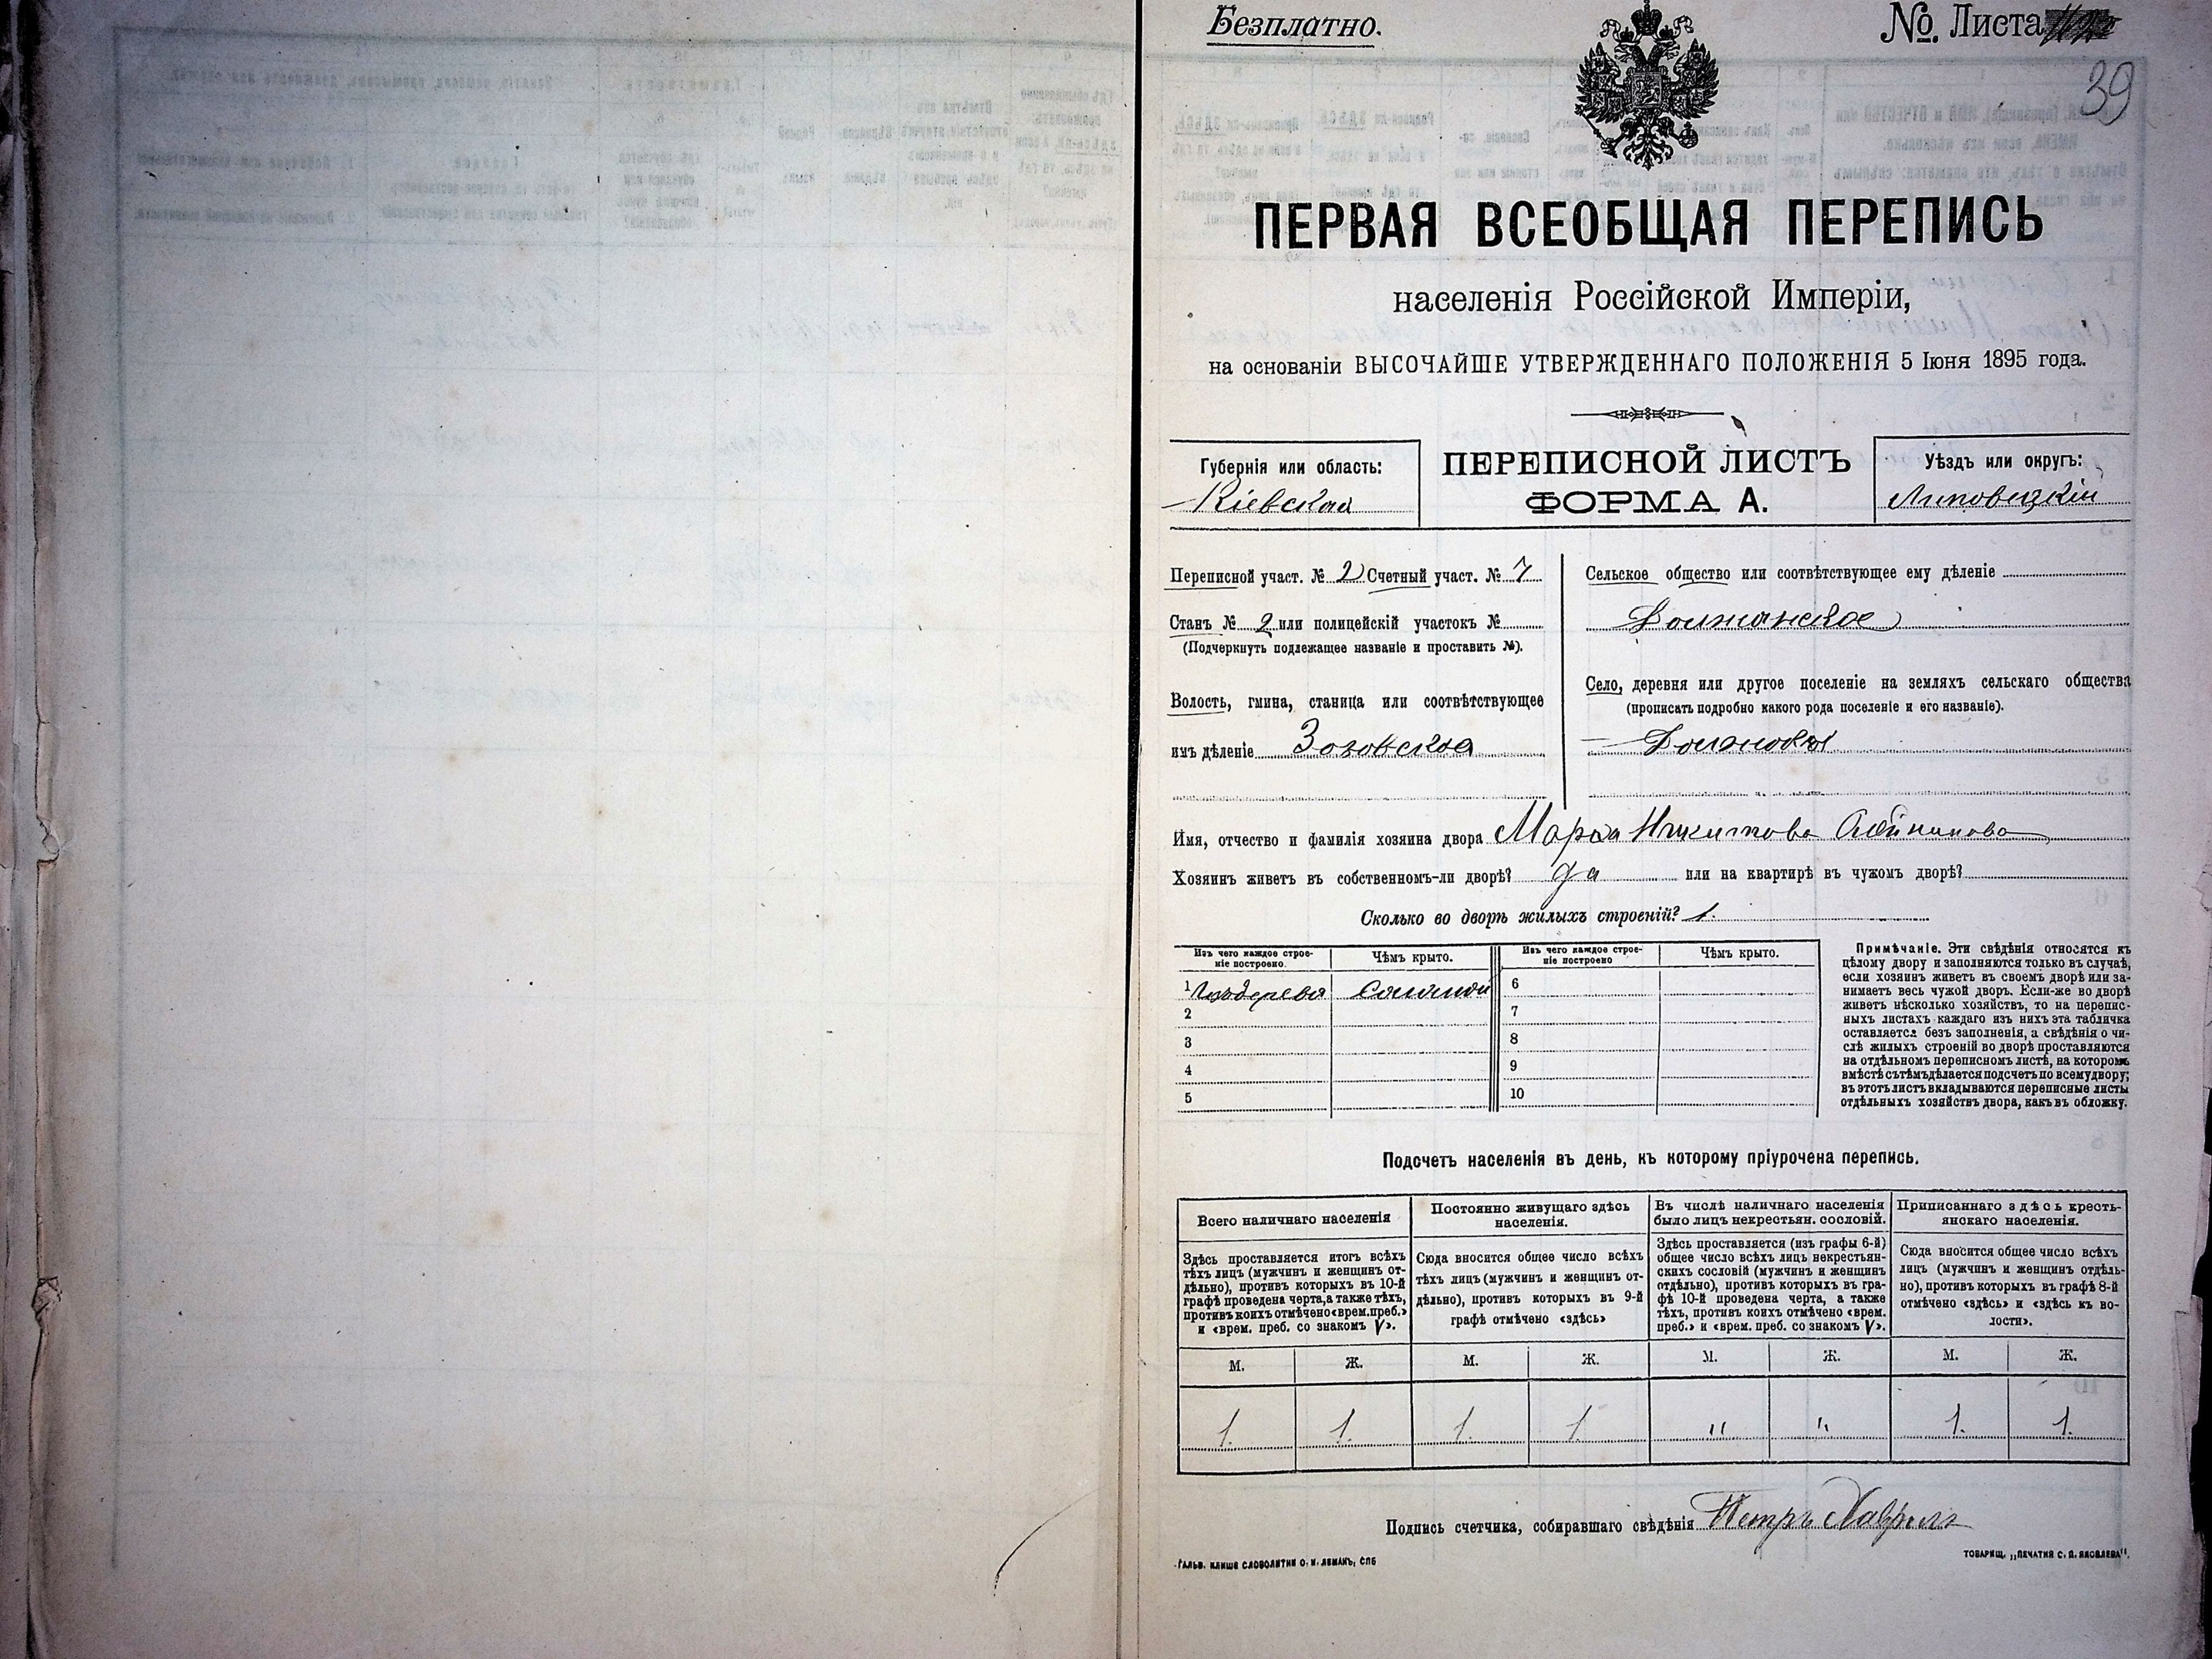 Безплатно.
№ Листа
39
ПЕРВАЯ ВСЕОБЩАЯ ПЕРЕПИСЬ
населенія Россійской Имперіи,
на основаніи ВЫСОЧАЙШЕ УТВЕРЖДЕННАГО ПОЛОЖЕНІЯ 5 Іюня 1895 года.
Губернія или область:
Кіевская
ПЕРЕПИСНОЙ ЛИСТЪ
ФОРМА А.
Уѣздъ или округъ:
Липовецкій
Переписной участ. № 2 Счетный участ. № 7
Станъ № 2 или полицейскій участокъ №
(Подчеркнуть подлежащее названіе и проставить №).
Волость, гмина, станица или соотвѣтствующее
имъ дѣленіе Зозовская
Сельское общество или соотвѣтствующее ему дѣленіе
Должанское
Село, деревня или другое поселеніе на земляхъ сельскаго общества
(прописать подробно какого рода поселеніе и его названіе).
Имя, отчество и фамилія хозяина двора Марія Никитова
Хозяинъ живетъ въ собственномъ-ли дворѣ? да или на квартирѣ въ чужомъ дворѣ?
Сколько во дворѣ жилыхъ строеній? 1.
Изъ чего каждое строе-
ніе построено.
Чѣмъ крыто.
Изъ чего каждое строе-
ніе построено
Чѣмъ крыто.
1 Изъ дерева Соломой 6
2 7
3 8
4 9
5 10
Примѣчаніе. Эти свѣдѣнія относятся къ
цѣлому двору и заполняются только въ случаѣ,
если хозяинъ живетъ въ своемъ дворѣ или за-
нимаетъ весь чужой дворъ. Если-же во дворѣ
живетъ нѣсколько хозяйствъ, то на перепис-
ныхъ листахъ каждаго изъ нихъ эта табличка
оставляется безъ заполненія, а свѣдѣнія о чи-
слѣ жилыхъ строеній во дворѣ проставляются
на отдѣльномъ переписномъ листѣ, на которомъ
вмѣстѣ съ тѣмъ дѣлается подсчетъ по всему двору;
въ этотъ листъ вкладываются переписные листы
отдѣльныхъ хозяйствъ двора, какъ въ обложку.
Подсчетъ населенія въ день, къ которому пріурочена перепись.
Всего наличнаго населенія
Здѣсь проставляется итогъ всѣхъ
тѣхъ лицъ (мужчинъ и женщинъ от-
дѣльно), противъ которыхъ въ 10-й
графѣ проведена черта, а также тѣхъ,
противъ коихъ отмѣчено «врем. преб.»
и «врем. преб. со знакомъ V».
Постоянно живущаго здѣсь
населенія.
Сюда вносится общее число всѣхъ
тѣхъ лицъ (мужчинъ и женщинъ от-
дѣльно), противъ которыхъ въ 9-й
графѣ отмѣчено «здѣсь»
Въ числѣ наличнаго населенія
было лицъ некрестьян. сословій.
Здѣсь проставляется (изъ графы 6-й)
общее число всѣхъ лицъ некрестьян-
скихъ сословій (мужчинъ и женщинъ
отдѣльно), противъ которыхъ въ гра-
фѣ 10-й проведена черта, а также
тѣхъ, противъ коихъ отмѣчено «врем.
преб.» и «врем. преб. со знакомъ V».
Приписаннаго здѣсь кресть-
янскаго населенія.
Сюда вносится общее число всѣхъ
лицъ (мужчинъ и женщинъ отдѣль-
но), противъ которыхъ въ графѣ 8-й
отмѣчено «здѣсь» и «здѣсь къ во-
лости».
М. Ж. М. Ж. М. Ж. М. Ж.
1. 1. 1. 1. " " 1. 1.
Подпись счетчика, собиравшаго свѣдѣнія Петръ
ГАЛЬВ. КЛИШЕ СЛОВОЛИТНИ О. И. ЛЕМАНЪ, СПБ
ТОВАРИЩ. „ПЕЧАТНЯ С. П. ЯКОВЛЕВА".